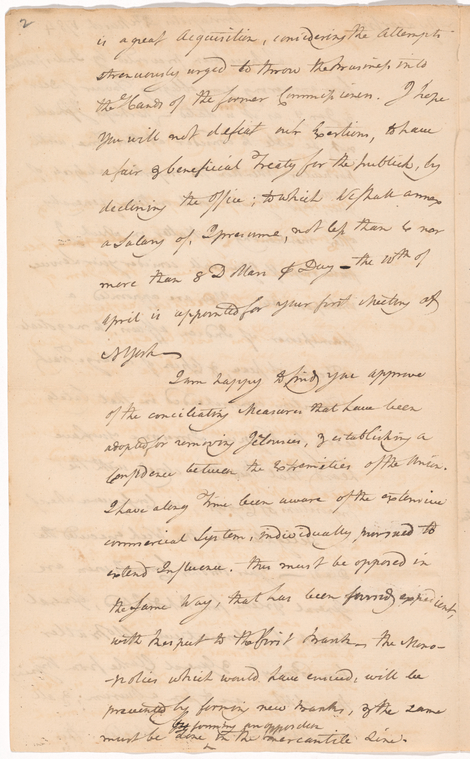 2
is a great Acquisition, considering the Attempts
strenuously urged to throw the Business into
the Hands of the former Commissioners. I hope
You will not defeat our Exertions, to have
a fair & beneficial Treaty for the publick, by
declining the Office; to which We shall annex
a Salary of, I presume, not less than 6 nor
more than 8 Dollars ⅌ Day — the 10th of
April is appointed for your first Meeting at
NYork —
I am happy to find, you approve
of the conciliating Measures that have been
adopted for removing Jelousies, & establishing a
Confidence between the Extremities of the Union.
I have a long Time been aware of the extensive
commercial System, individually, pursued to
extend Influence. this must be opposed in
the same Way, that has been found expedient,
with Respect to the first Bank — the Mono-
-polies which would have ensued, will be
prevented by forming new Banks, & the same
by forming an opposition
must be done in the mercantile Line.